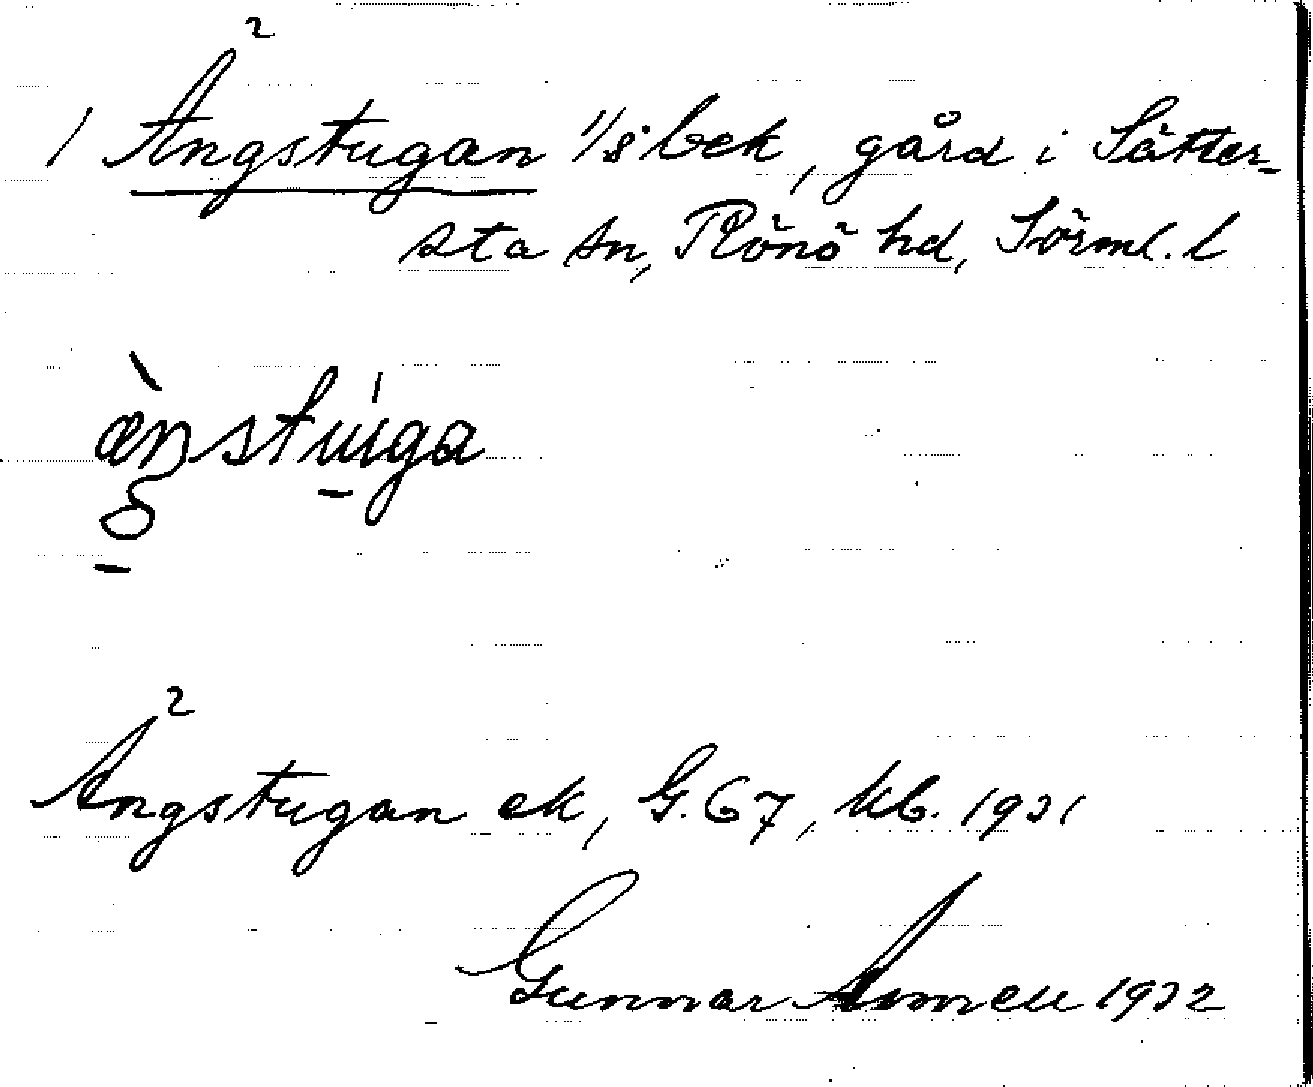 2
/ Ängstugan 1/8 bek, gård i Sätter-
sta sn, Rönö hd, Sörml. l
æ̀ŋstúga
2
Ängstugan ek, G. 67, kb. 1931
Gunnar 1932